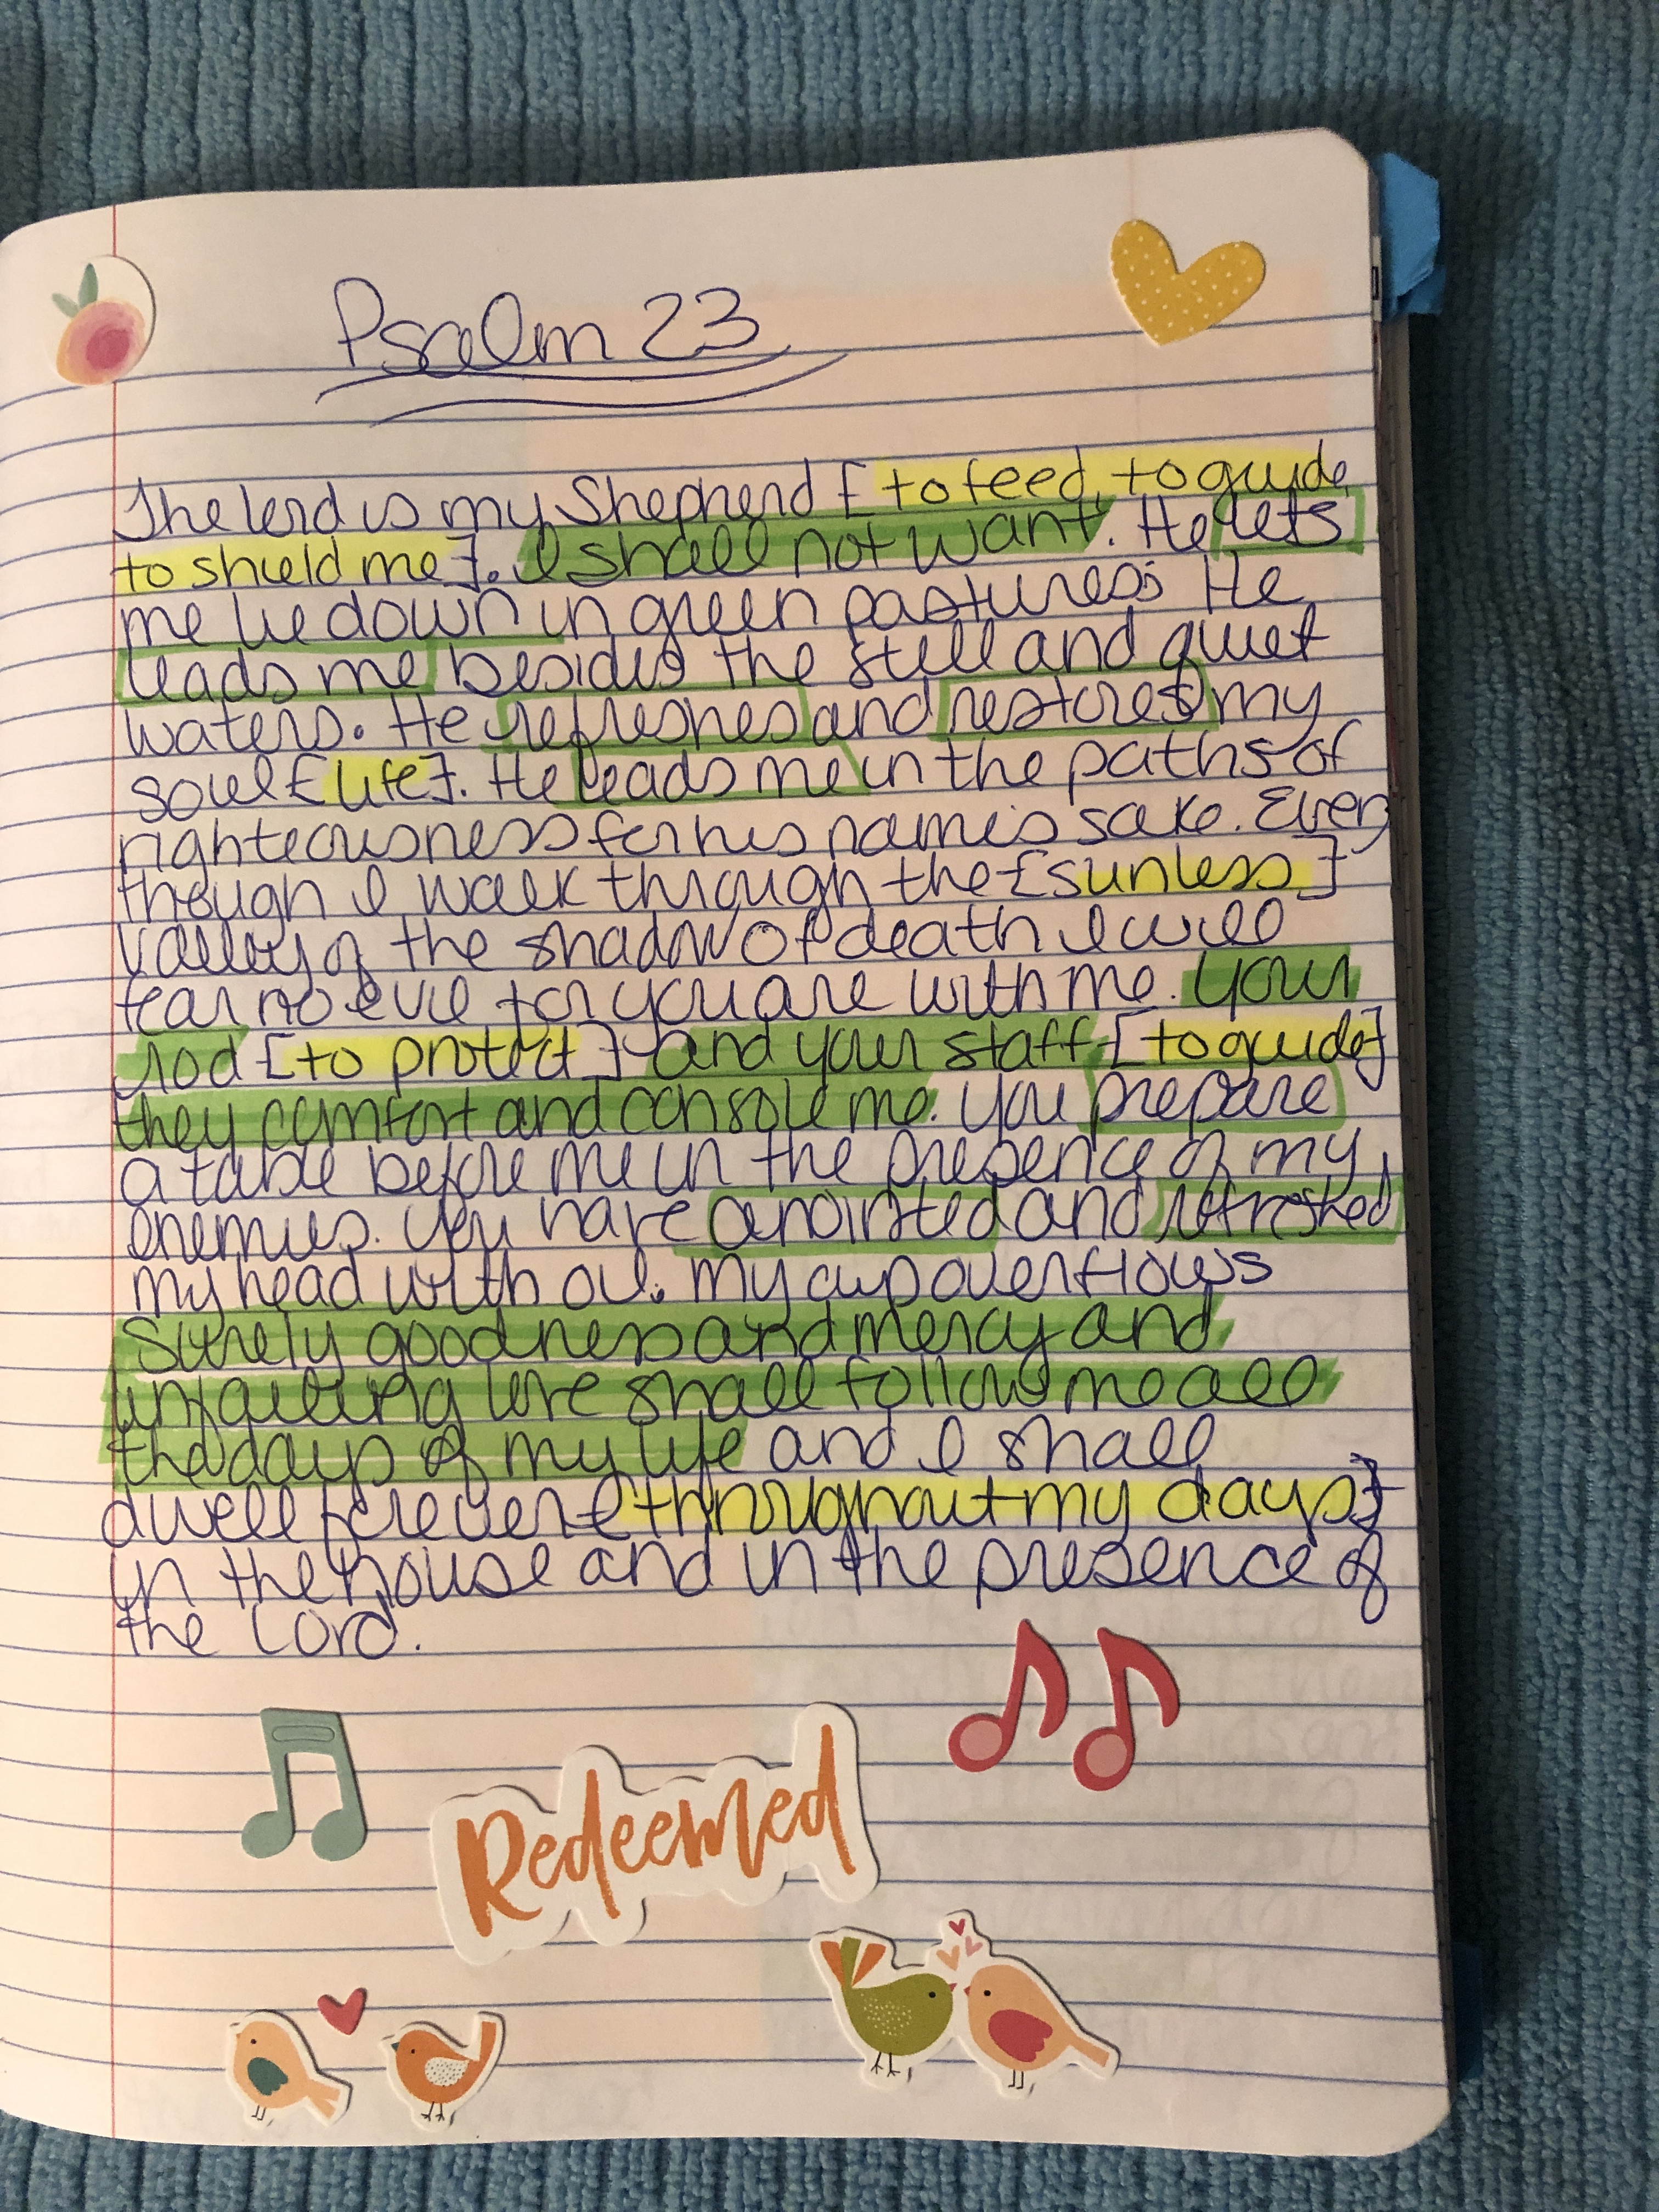 Psalm 23
The lord is my Shepherd [to feed, to guide
to shield me]. I shall not want. He lets
me lie down in green pastures; He
leads me besides the still and quiet
waters. He refreshes and restores my
soul [life]. He leads me in the paths of
righteousness for his name's sake. Even
though I walk through the [sunless]
valley of the shadow of death I will
fear no evil for you are with me. Your
rod [to protect] and your staff [to guide]
they comfort and console me. You prepare
a table before me in the presence of my
enemies. You have anointed and refreshed
my head with oil. My cup overflows
Surely goodness and mercy and
unfailing love shall follow me all
the days of my life and I shall
dwell forever [throughout my days]
in the house and in the presence of
the Lord.
Redeemed